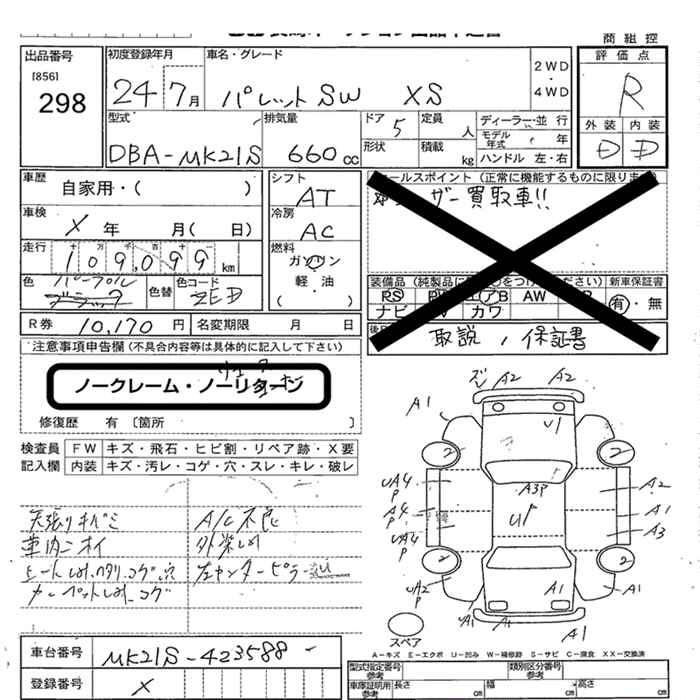 商組控
出品番号
[856]
298
初度登録年月
24年 7月
車名・グレード
パレットSW XS
2WD
・
4WD
評価点
R
外装 内装
D D
型式
DBA-MK21S
排気量
660cc
ドア 5
形状
定員 人
積載 kg
ディーラー・並行
モデル年式 年
ハンドル 左・右
車歴
自家用・( )
車検
X 年 月( 日)
走行
十万 千百十一
109,099 km
色
パープル
ブラック
色替
色コード
ZED
シフト
AT
冷房
AC
燃料
ガソリン
軽・油
( )
セールスポイント (正常に機能するものに限ります)
ユーザー買取車!!
装備品 (純製品に をつけ ださい) 新車保証書
PS PW エアB AW 有・無
ナビ カワ
取説、保証書
R券 10,170 円 名変期限 月 日
注意事項申告欄 (不具合内容等は具体的に記入して下さい)
ノークレーム・ノーリターン
修復歴 有 〔箇所 〕
検査員 FW キズ・飛石・ヒビ割・リペア跡・X要
記入欄 内装 キズ・汚レ・コゲ・穴・スレ・キレ・破レ
天張りキバミ A/C不良
車内ニオイ 外装しみ
シートしみ.ヘタリ.コゲ.穴 左センターピラー
カーペットしみ.コゲ
A2 A2
A1 U1
2 2
UA4 P A3P A2
A4 P U1 A1
UA4 P A3
2 2
UA2 P A1 A1 A1
UA1 A1 A1
スペア
A-キズ E-エクボ U-凹み W-補修跡 S-サビ C-腐食 XX-交換済
車台番号 MK21S-423588
登録番号 X
型式指定番号 類別区分番号
参考 参考
車庫証明用 長さ cm 幅 cm 高さ cm
参考